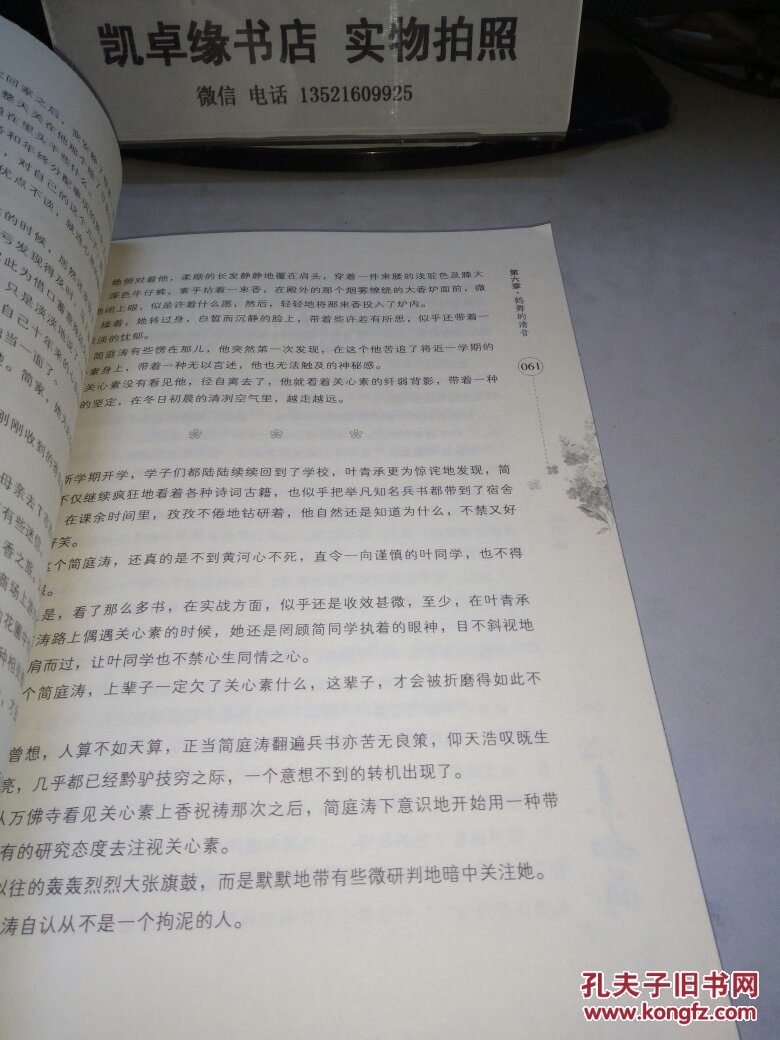 凯卓缘书店 实物拍照
微信 电话 13521609925
回家之后，
整天关在他那个
在里头干些什么
和年终分配
，对自己的这个儿子
优点不谈，就连
的时候，居然
亏发现得及时
此为借口
只是淡淡地
自己十年来的
当一面了。
简家，她
刚刚收到的
母亲去
有些迷信
香之旅。
商场上
花圃中
种相处
她侧对着他，柔顺的长发静静地覆在肩头，穿着一件束腰的浅驼色及膝大
深色牛仔裤，素手拈着一束香，在殿外的那个烟雾缭绕的大香炉面前，微
地闭上眼，似是许着什么愿，然后，轻轻地将那束香投入了炉内。
接着，她转过身，白皙而沉静的脸上，带着些许若有所思，似乎还带着一
淡的忧郁。
简庭涛有些愣在那儿，他突然第一次发现，在这个他苦追了将近一学期的
素身上，带着一种无以言述，他也无法触及的神秘感。
关心素没有看见他，径自离去了，他就看着关心素的纤弱背影，带着一种
的坚定，在冬日初晨的清冽空气里，越走越远。
新学期开学，学子们都陆陆续续回到了学校，叶青承更为惊诧地发现，简
不仅继续疯狂地看着各种诗词古籍，也似乎把举凡知名兵书都带到了宿舍
在课余时间里，孜孜不倦地钻研着，他自然还是知道为什么，不禁又好
好笑。
这个简庭涛，还真的是不到黄河心不死，直令一向谨慎的叶同学，也不得
。
是，看了那么多书，在实战方面，似乎还是收效甚微，至少，在叶青承
涛路上偶遇关心素的时候，她还是罔顾简同学执着的眼神，目不斜视地
肩而过，让叶同学也不禁心生同情之心。
个简庭涛，上辈子一定欠了关心素什么，这辈子，才会被折磨得如此不
曾想，人算不如天算，正当简庭涛翻遍兵书亦苦无良策，仰天浩叹既生
亮，几乎都已经黔驴技穷之际，一个意想不到的转机出现了。
从万佛寺看见关心素上香祝祷那次之后，简庭涛下意识地开始用一种带
有的研究态度去注视关心素。
以往的轰轰烈烈大张旗鼓，而是默默地带有些微研判地暗中关注她。
涛自认从不是一个拘泥的人。
第六章·鹤舞的清音
061
孔夫子旧书网
www.kongfz.com